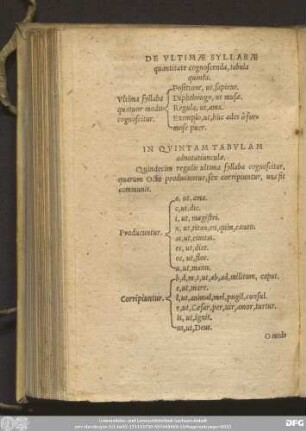 DE VLTIMÆ SYLLABÆ
quantitate cognoscenda, tabula
quinta.
Vltima syllaba
quatuor modis
cognoscitur.
Positione, ut, sapiens.
Diphthongo, ut musæ.
Regula, ut, ama.
Exemplo, ut, huc ades ô formose puer.
IN QVINTAM TABVLAM
adnotatiuncula.
Quindecim regulis ultima syllaba cognoscitur,
quarum Octo producuntur, sex corripiuntur, una fit
communis.
Producuntur.
a, ut, ama.
c, ut, dic.
i, ut, magistri.
n, ut, titan, en, quin,
as, ut, ciuitas.
es, ut, dies.
os, ut, flos.
u, ut, manu.
Corripiuntur.
b, d, m, t, ut, ab, ad, militum, caput.
e, ut, mare.
l, ut, animal, mel, pugil, consul.
r, ut, Cæsar, per, uir, amor, turtur.
is, ut, ignis.
us, ut, Deus.
O modo
DFG